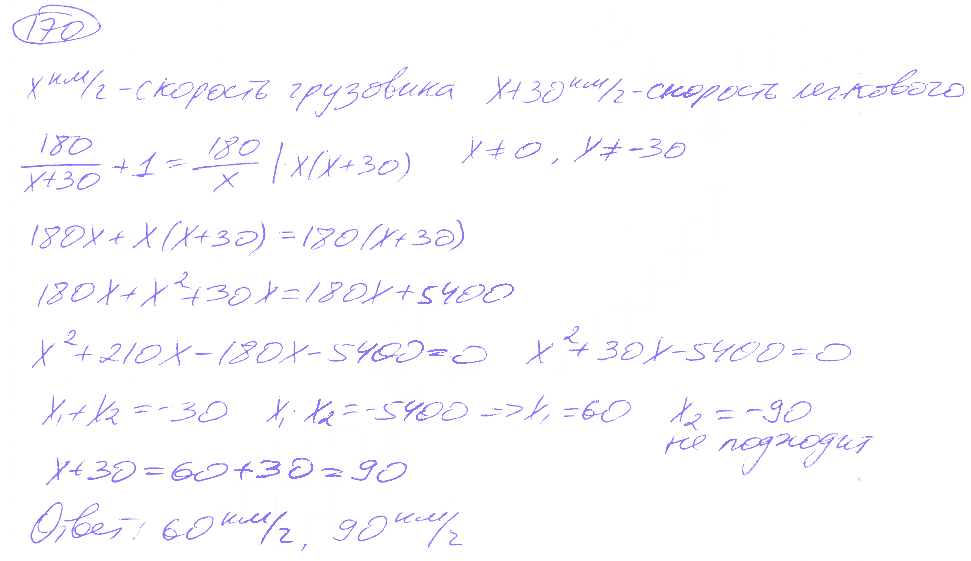 170
x км/г - скорость грузовика x+30 км/г - скорость легкового
180/(x+30) + 1 = 180/x | · x(x+30) x ≠ 0, x ≠ -30
180x + x(x+30) = 180(x+30)
180x + x² + 30x = 180x + 5400
x² + 210x - 180x - 5400 = 0 x² + 30x - 5400 = 0
x₁ + x₂ = -30 x₁ · x₂ = -5400 => x₁ = 60 x₂ = -90
не подходит
x+30 = 60+30 = 90
Ответ: 60 км/г, 90 км/г